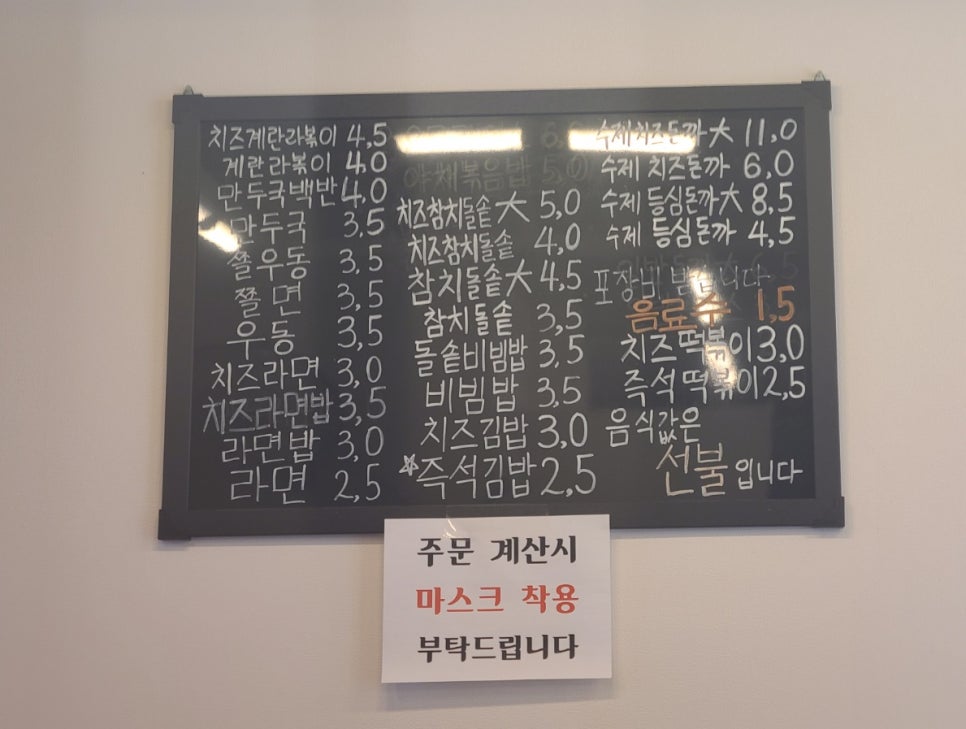 치즈계란라볶이 4,5
계란라볶이 4,0
만두국백반 4,0
만두국 3,5
쫄우동 3,5
쫄면 3,5
우동 3,5
치즈라면 3,0
치즈라면밥 3,5
라면밥 3,0
라면 2,5
야채볶음밥 5,0
치즈참치돌솥 大 5,0
치즈참치돌솥 4,0
참치돌솥 大 4,5
참치돌솥 3,5
돌솥비빔밥 3,5
비빔밥 3,5
치즈김밥 3,0
☆즉석김밥 2,5
수제치즈돈까 大 11,0
수제 치즈돈까 6,0
수제 등심돈까 大 8,5
수제 등심돈까 4,5
포장비 받습니다
음료수 1,5
치즈떡볶이 3,0
즉석떡볶이 2,5
음식값은
선불입니다
주문 계산시
마스크 착용
부탁드립니다